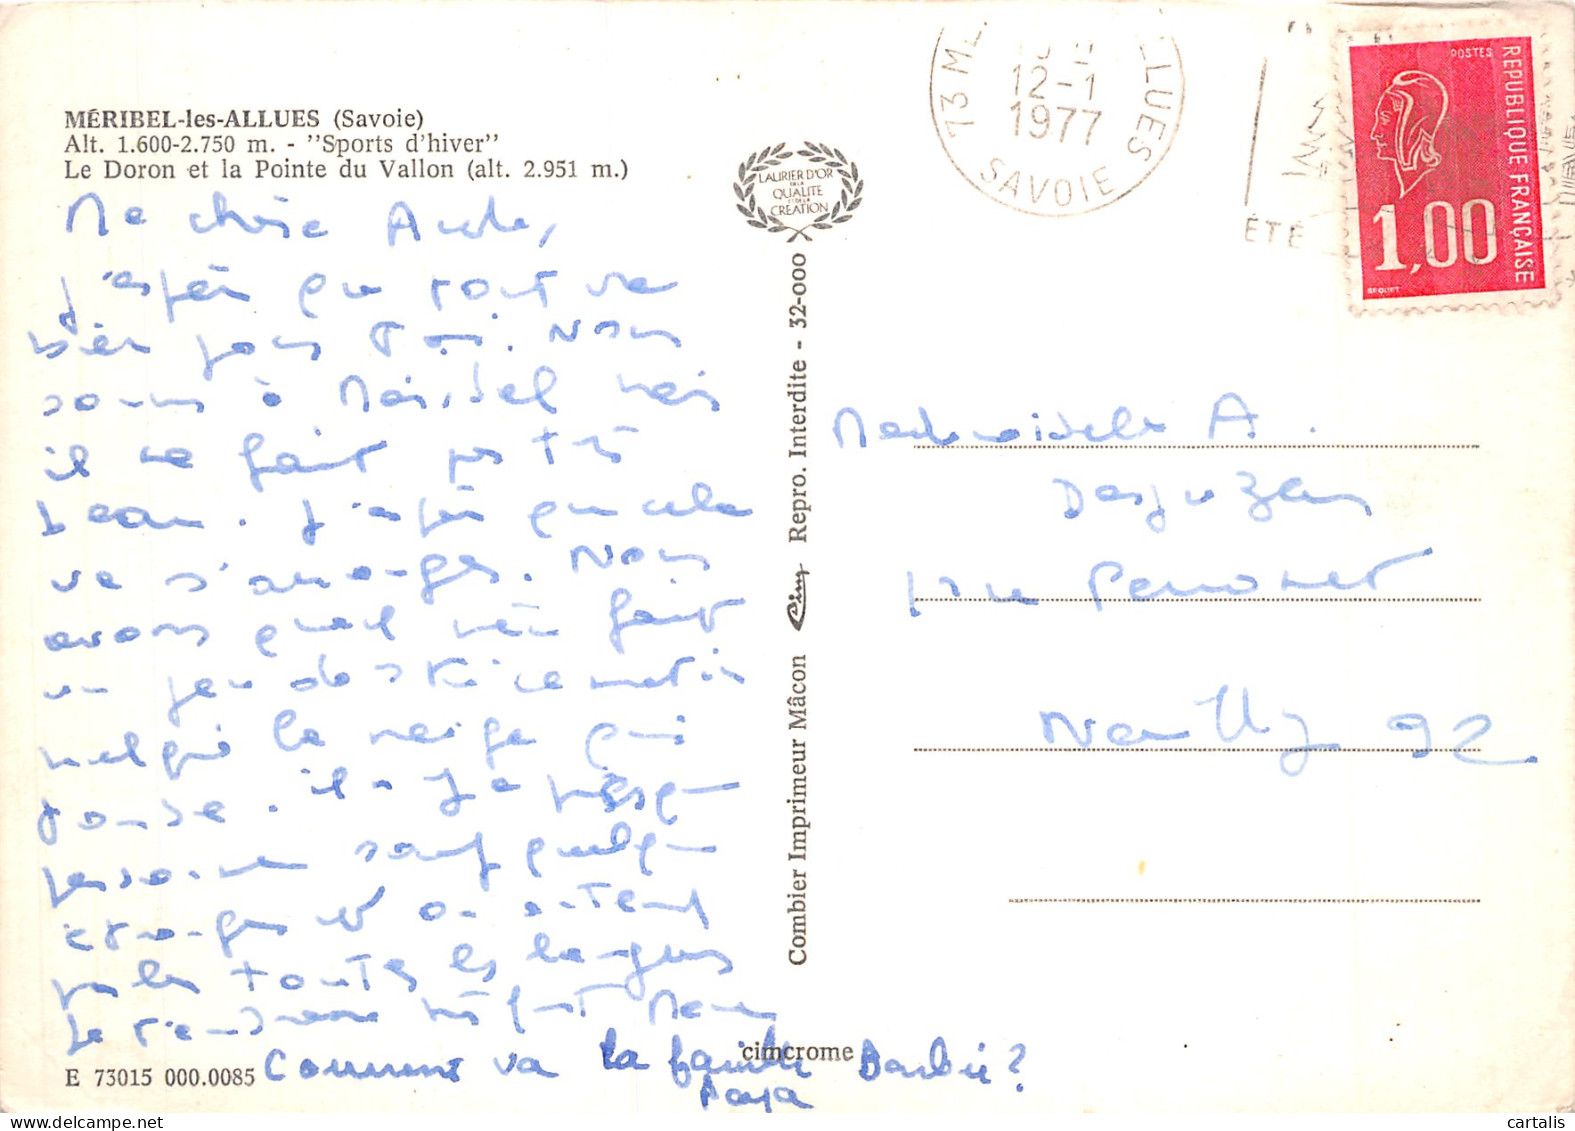 MÉRIBEL-les-ALLUES (Savoie)
Alt. 1.600-2.750 m. - "Sports d'hiver"
Le Doron et la Pointe du Vallon (alt. 2.951 m.)
Ma chérie Aude,
j'espère que tout va
bien pour toi. Nous
sommes à Méribel mais
il ne fait pas très
beau. J'espère que cela
va s'arranger. Nous
avons quand même fait
un peu de ski ce matin
malgré la neige qui
tombe. il n'y a presque
personne sauf quelques
étrangers et on entend
parler toutes les langues
Je t'embrasse très fort Maman
Comment va la famille Barbie?
Papa
E 73015 000.0085
cimcrome
LAURIER D'OR
DE LA
QUALITE
ET DE LA
CREATION
Combier Imprimeur Mâcon Cim Repro. Interdite - 32-000
73 MÉ LUES
12-1
1977
SAVOIE
ÉTÉ
POSTES
REPUBLIQUE FRANÇAISE
1,00
BEQUET
Mademoiselle A.
rue Perronet
Neuilly 92
cartalis
delcampe.net